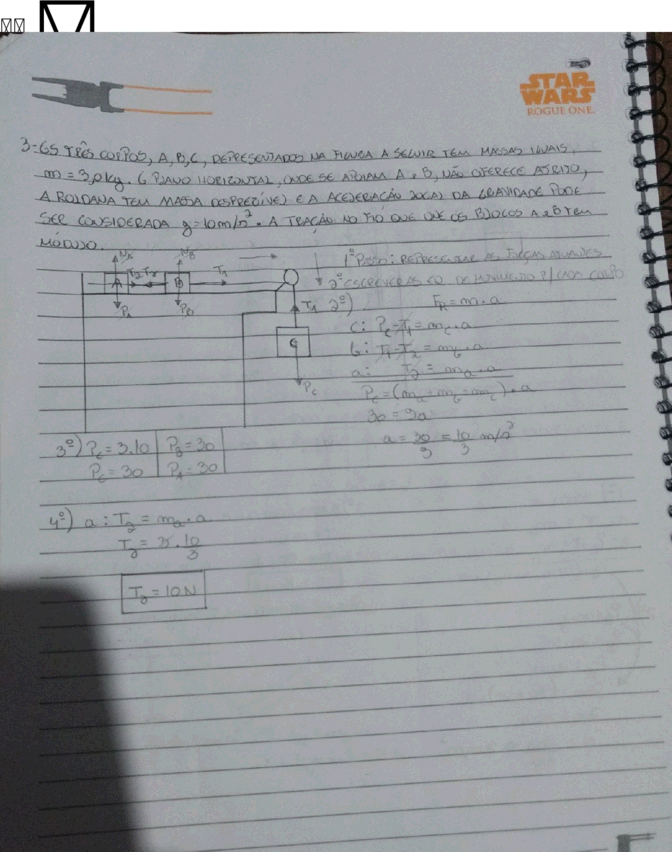 STAR
WARS
ROGUE ONE
3-OS TRÊS CORPOS, A, B, C, REPRESENTADOS NA FIGURA A SEGUIR TÊM MASSAS IGUAIS,
m = 3,0kg. O PLANO HORIZONTAL, ONDE SE APOIAM A e B, NÃO OFERECE ATRITO,
A ROLDANA TEM MASSA DESPREZÍVEL E A ACELERAÇÃO LOCAL DA GRAVIDADE PODE
SER CONSIDERADA g=10m/s². A TRAÇÃO NO FIO QUE UNE OS BLOCOS A e B TEM
MÓDULO.
1º Passo: REPRESENTAR AS FORÇAS ATUANTES
2º ESCREVER AS EQ DE MOVIMENTO P/ CADA CORPO
NA
NB
A
T2 T2
B
T1
PA
PB
T1
C
Pc
2º)
FR = m.a
C: Pc-T1 = mc.a
b: T1-T2 = mb.a
a: T2 = ma.a
Pc = (ma+mb+mc).a
30 = 9a
a = 30/9 = 10/3 m/s²
3º) Pc = 3.10
PB = 30
Pc = 30
PA = 30
4º) a: T2 = ma.a
T2 = 3.10/3
T2 = 10N